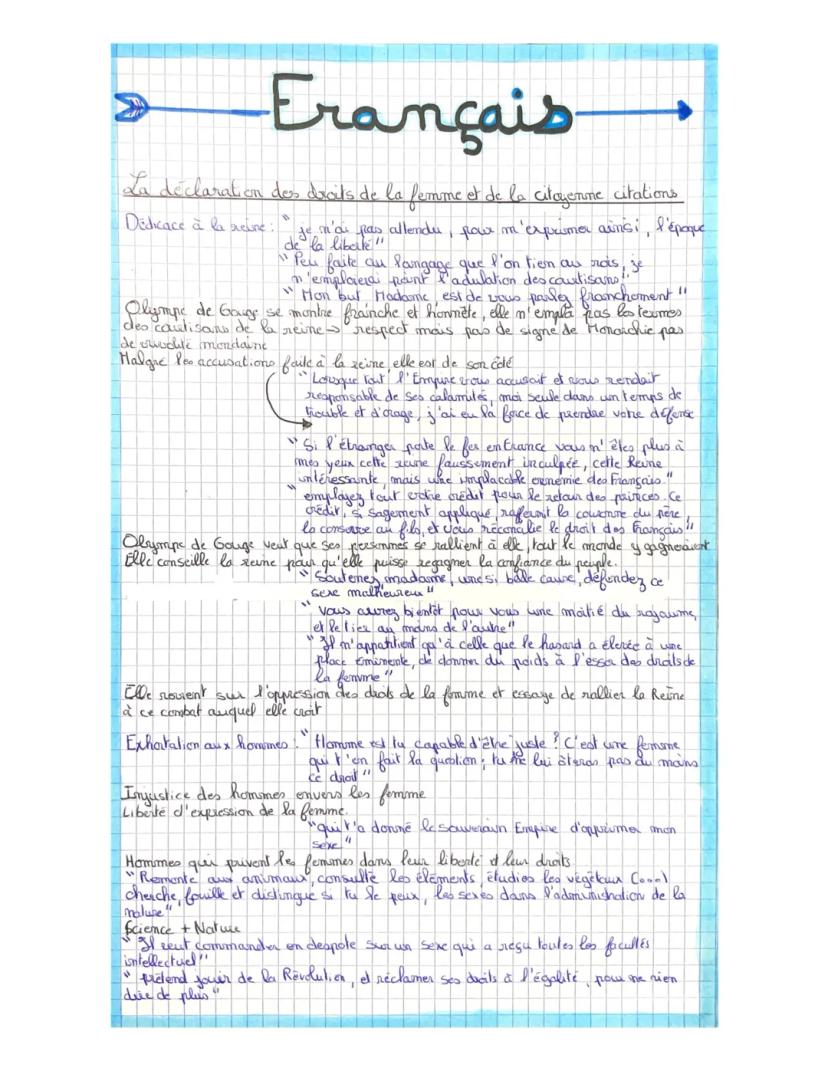 Français
La déclaration des droits de la femme et de la citoyenne citations
Dédicace à la reine : " je n'ai pas attendu, pour m'exprimer ainsi, l'époque
de la liberté"
" Peu faite au langage que l'on tien au rois, je
n'emploierai point l'adulation des coutisans".
" Mon but Madame, est de vous parler franchement "
Olympe de Gouge se montre frainche et honnête, elle n'emploi pas les termes
des coutisans de la reine → respect mais pas de signe de Monarchie pas
de mondaine
Malgré les accusations faite à la reine, elle est de son côté
" Lorsque tout l'Empire vous accusait et vous rendait
responsable de ses calamités, moi seule dans un temps de
trouble et d'orage, j'ai eu la force de prendre votre défense
" Si l'étranger porte le fer en France vous n'êtes plus à
mes yeux cette reine faussement inculpée, cette Reine
intéressante, mais une implacable ennemie des Français."
" employez tout votre crédit pour le retour des princes. Ce
crédit, si sagement appliqué, raffermit la couronne du père,
la conserve au fils, et vous réconcilie le droit des Français"
Olympe de Gouge veut que ses personnes se rallient à elle, tout le monde y gagneraient
Elle conseille la reine pour qu'elle puisse regagner la confiance du peuple.
" Soutenez, madame, une si belle cause, défendez ce
sexe malheureux "
" Vous aurez bientôt pour vous une moitié du royaume,
et le tier au moins de l'autre"
" Il n'appartient qu'à celle que le hasard a élevée à une
place éminente, de donner du poids à l'essor des droits de
la femme "
Elle revient sur l'oppression des droits de la femme et essaye de rallier la Reine
à ce combat auquel elle croit
Exhortation aux hommes : " Homme est tu capable d'être juste ? C'est une femme
qui t'en fait la question ; tu ne lui ôteras pas du moins
ce droit "
Injustice des hommes envers les femme
Liberté d'expression de la femme.
"qui t'a donné le souverain Empire d'opprimer mon
sexe "
Hommes qui privent les femmes dans leur liberté et leur droits
" Remonte aux animaux, consulte les éléments, étudies les végétaux (...)
cherche, fouille et distingue si tu le peux, les sexes dans l'administration de la
nature "
Science + Nature
" Il veut commander en despote sur un sexe qui a reçu toutes les facultés
intellectuel"
" prétend jouir de la Révolution, et réclamer ses droits à l'égalité, pour ne rien
dire de plus "